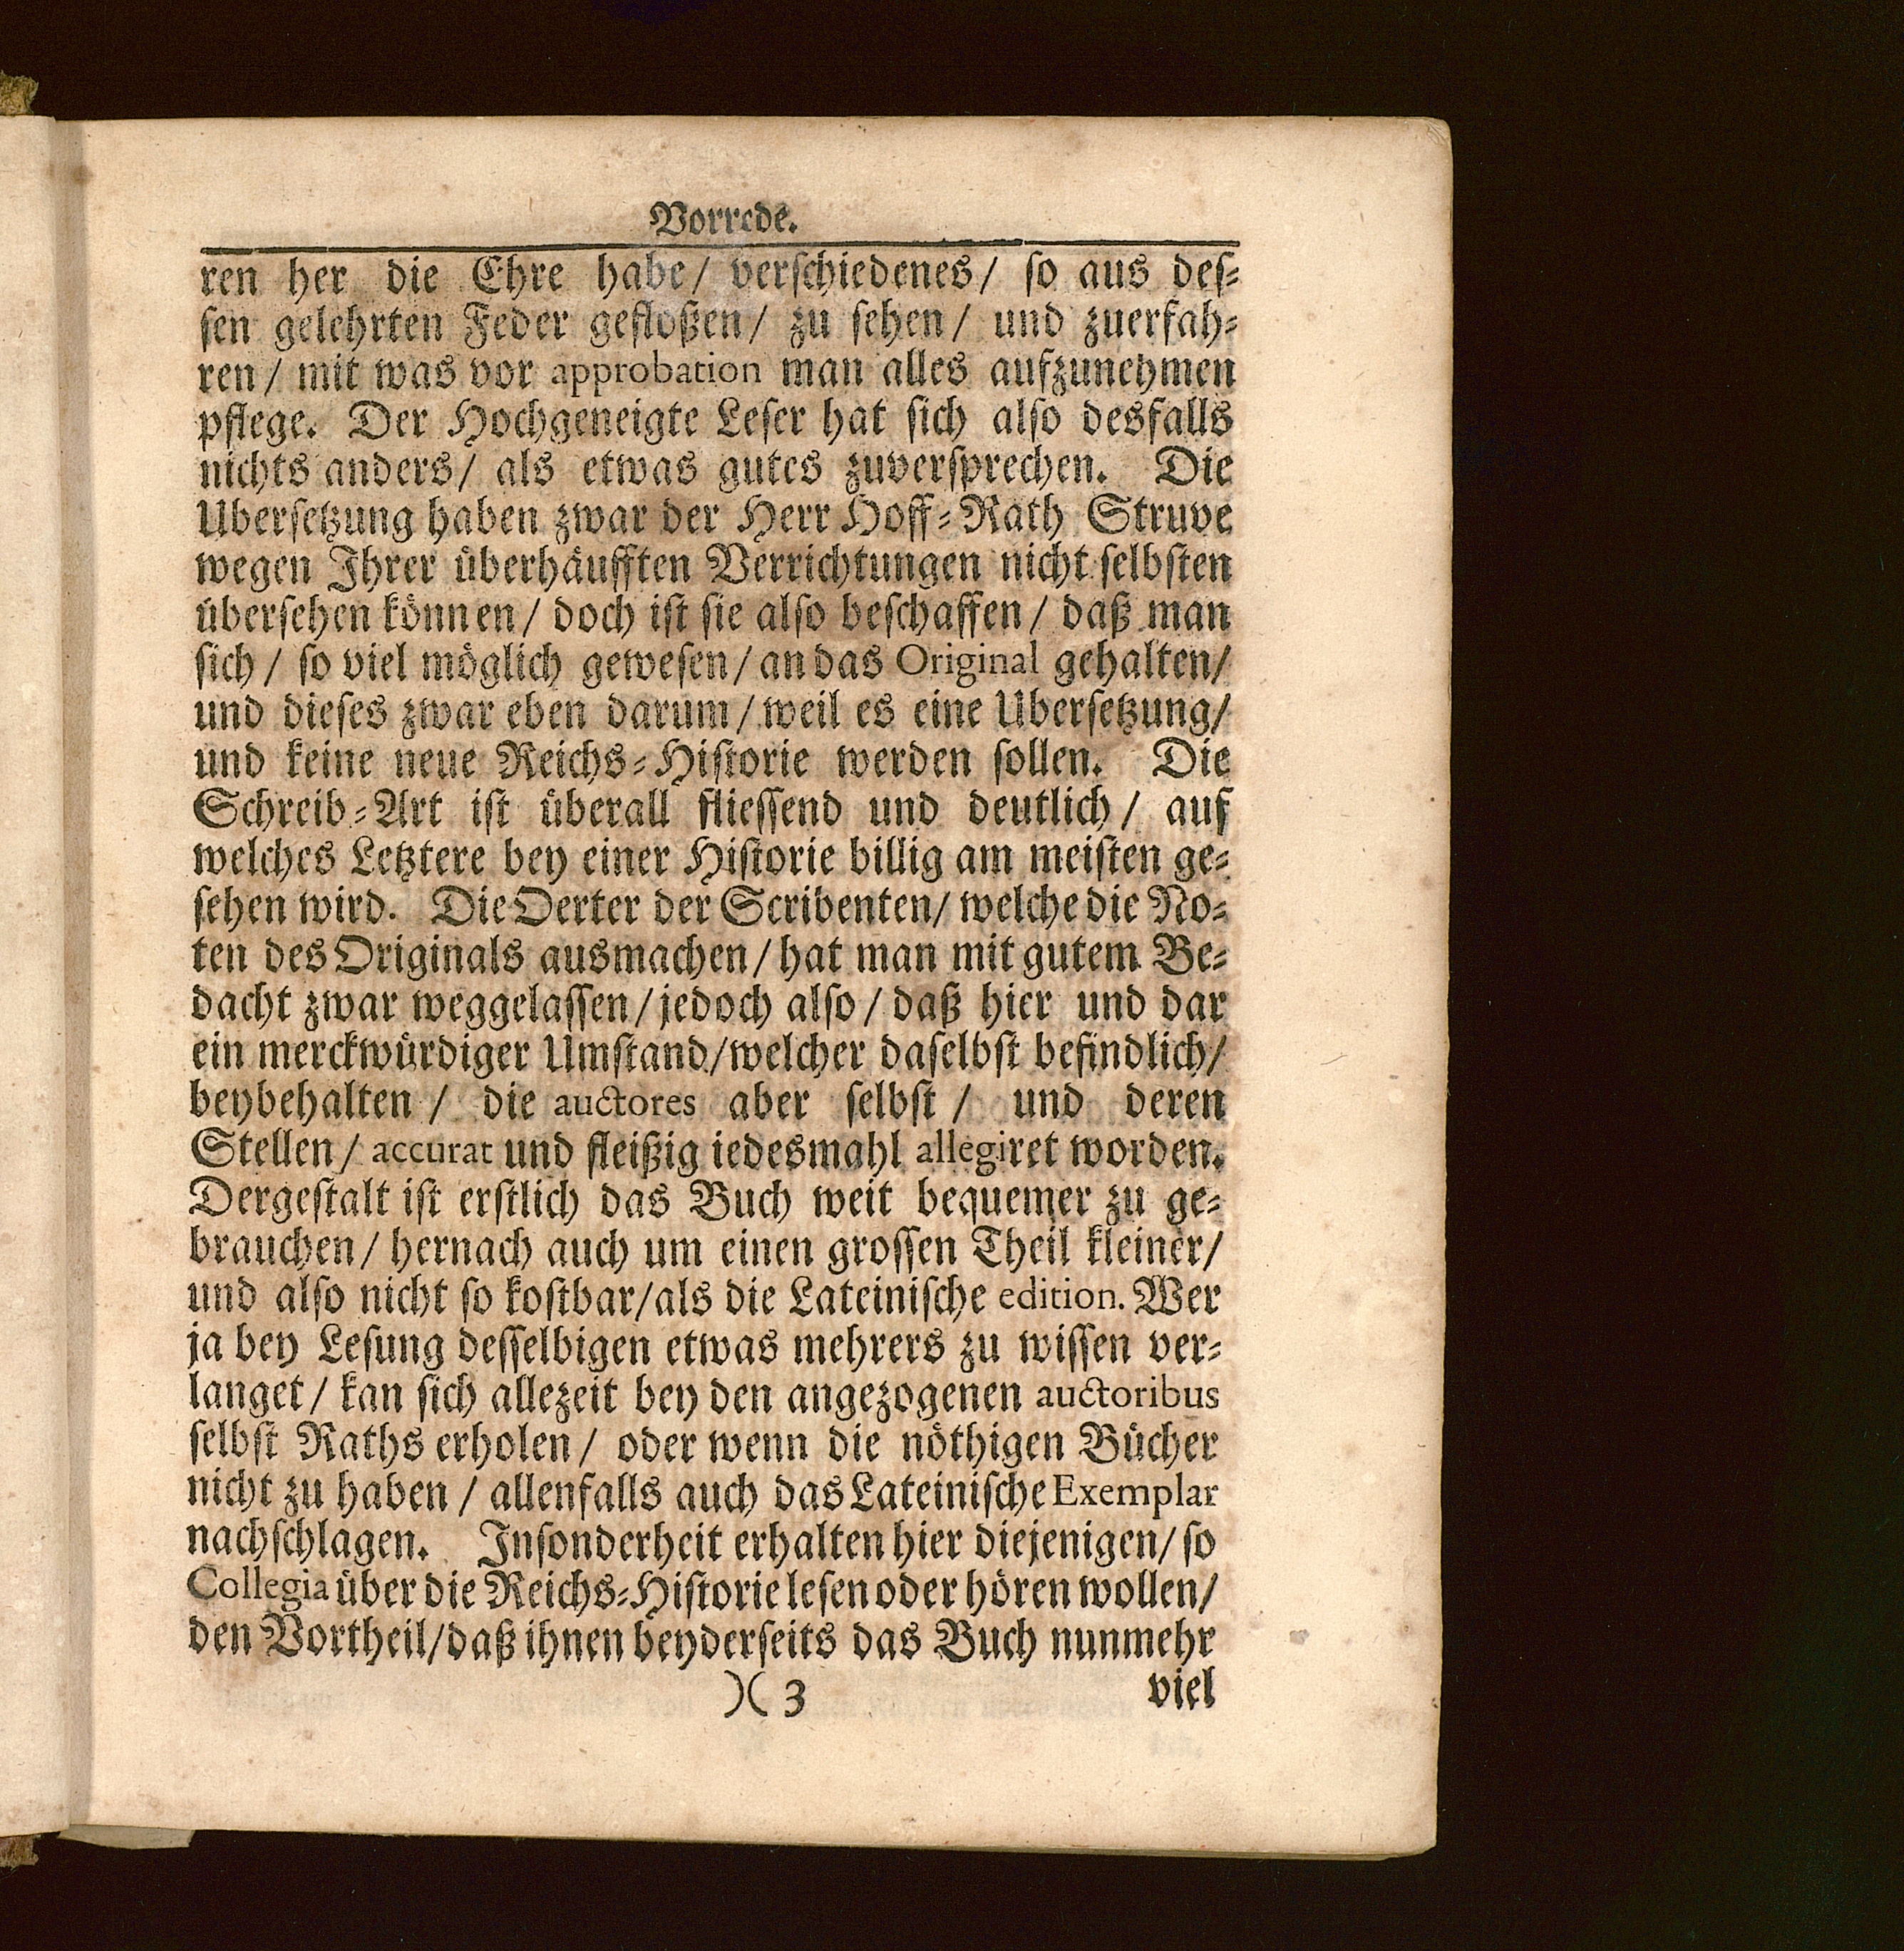 Vorrede.
ren her die Ehre habe/ verschiedenes/ so aus des⸗
sen gelehrten Feder gefloßen/ zu sehen/ und zuerfah⸗
ren/ mit was vor approbation man alles aufzunehmen
pflege. Der Hochgeneigte Leser hat sich also desfalls
nichts anders/ als etwas gutes zuversprechen. Die
Ubersetzung haben zwar der Herr Hoff⸗Rath Struve
wegen Ihrer überhäufften Verrichtungen nicht selbsten
übersehen können/ doch ist sie also beschaffen/ daß man
sich/ so viel möglich gewesen/ an das Original gehalten/
und dieses zwar eben darum/ weil es eine Ubersetzung/
und keine neue Reichs⸗Historie werden sollen. Die
Schreib⸗Art ist überall fliessend und deutlich/ auf
welches Letztere bey einer Historie billig am meisten ge⸗
sehen wird. Die Oerter der Scribenten/ welche die No⸗
ten des Originals ausmachen/ hat man mit gutem Be⸗
dacht zwar weggelassen/ jedoch also/ daß hier und dar
ein merckwürdiger Umstand/ welcher daselbst befindlich/
beybehalten/ die auctores aber selbst/ und deren
Stellen/ accurat und fleißig iedesmahl allegiret worden.
Dergestalt ist erstlich das Buch weit bequemer zu ge⸗
brauchen/ hernach auch um einen grossen Theil kleiner/
und also nicht so kostbar/ als die Lateinische edition. Wer
ja bey Lesung desselbigen etwas mehrers zu wissen ver⸗
langet/ kan sich allezeit bey den angezogenen auctoribus
selbst Raths erholen/ oder wenn die nöthigen Bücher
nicht zu haben/ allenfalls auch das Lateinische Exemplar
nachschlagen. Insonderheit erhalten hier diejenigen/ so
Collegia über die Reichs⸗Historie lesen oder hören wollen/
den Vortheil/ daß ihnen beyderseits das Buch nunmehr
)( 3 viel